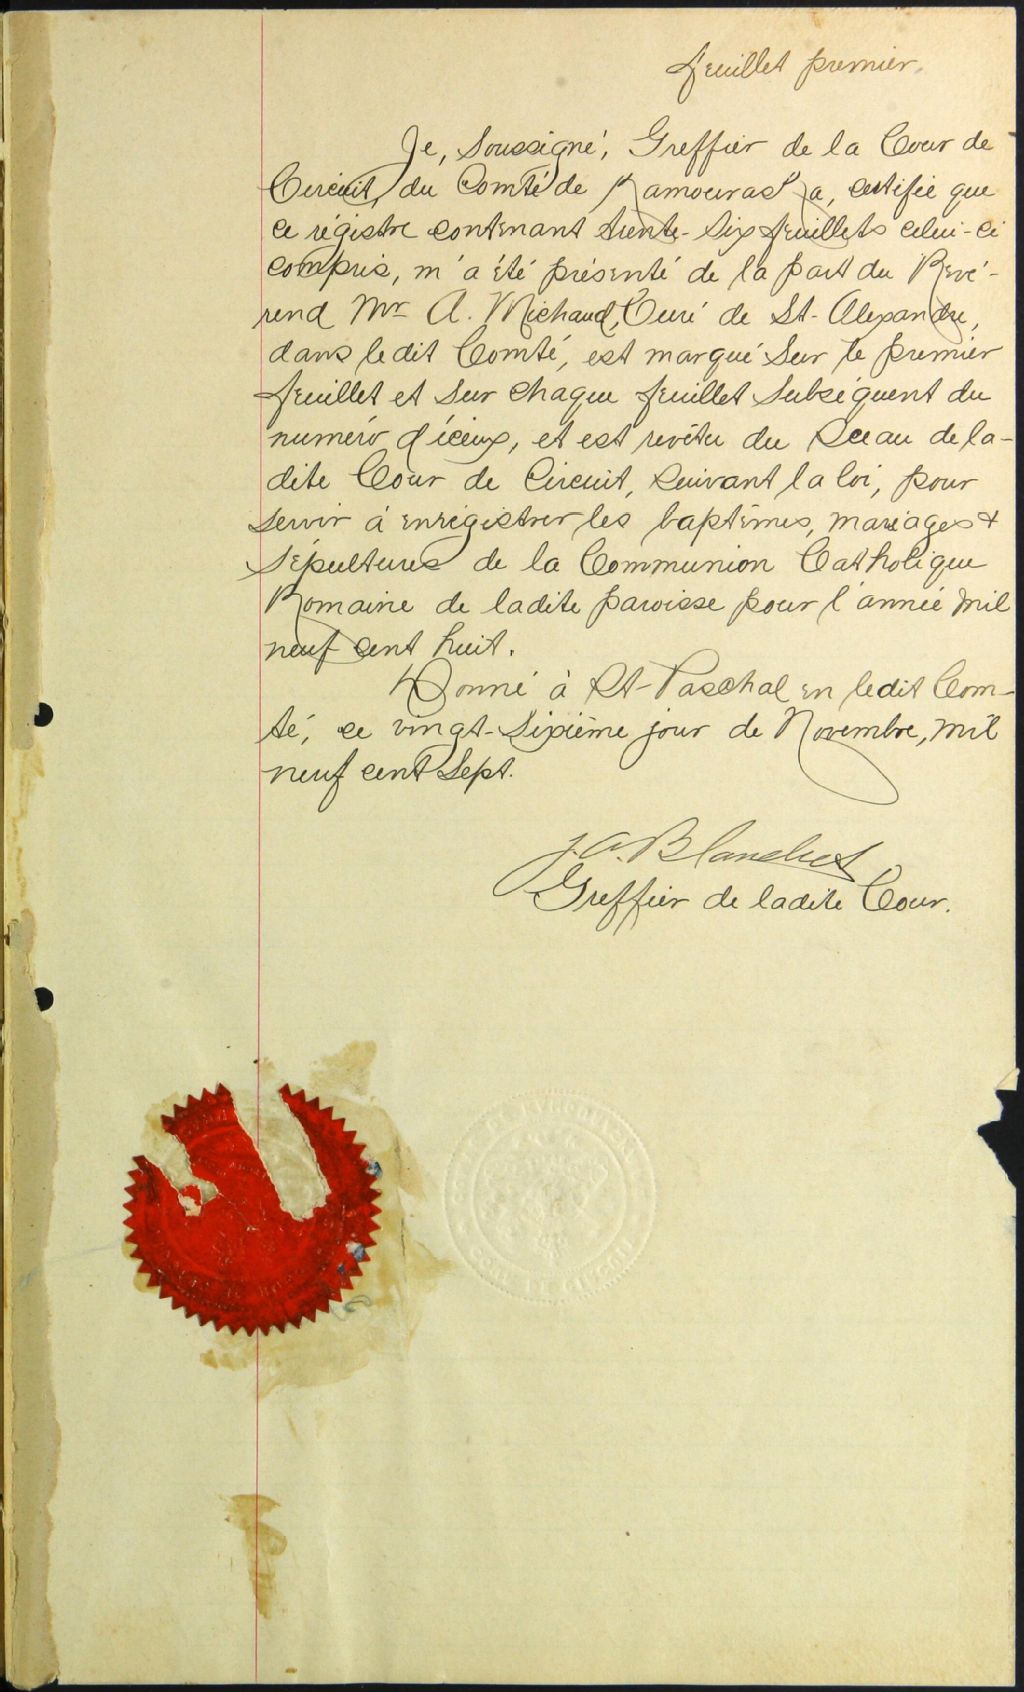 feuillet premier.
Je, Soussigné, Greffier de la Cour de
Circuit, du Comté de Kamouraska, certifie que
ce régistre contenant trente-six feuillets celui-ci
compris, m'a été présenté de la part du Revé-
rend Mr A. Michaud, Curé de St-Alexandre,
dans ledit Comté, est marqué sur le premier
feuillet et sur chaque feuillet subséquent du
numéro d'iceux, et est revêtu du Sceau de la-
dite Cour de Circuit, suivant la loi, pour
servir à enrégistrer les baptêmes, mariages &
sépultures de la Communion Catholique
Romaine de ladite paroisse pour l'année mil
neuf cent huit.
Donné à St-Paschal en ledit Com-
té, ce vingt-sixième jour de Novembre, mil
neuf cent sept.
J. A. Blanchet
Greffier de ladite Cour.